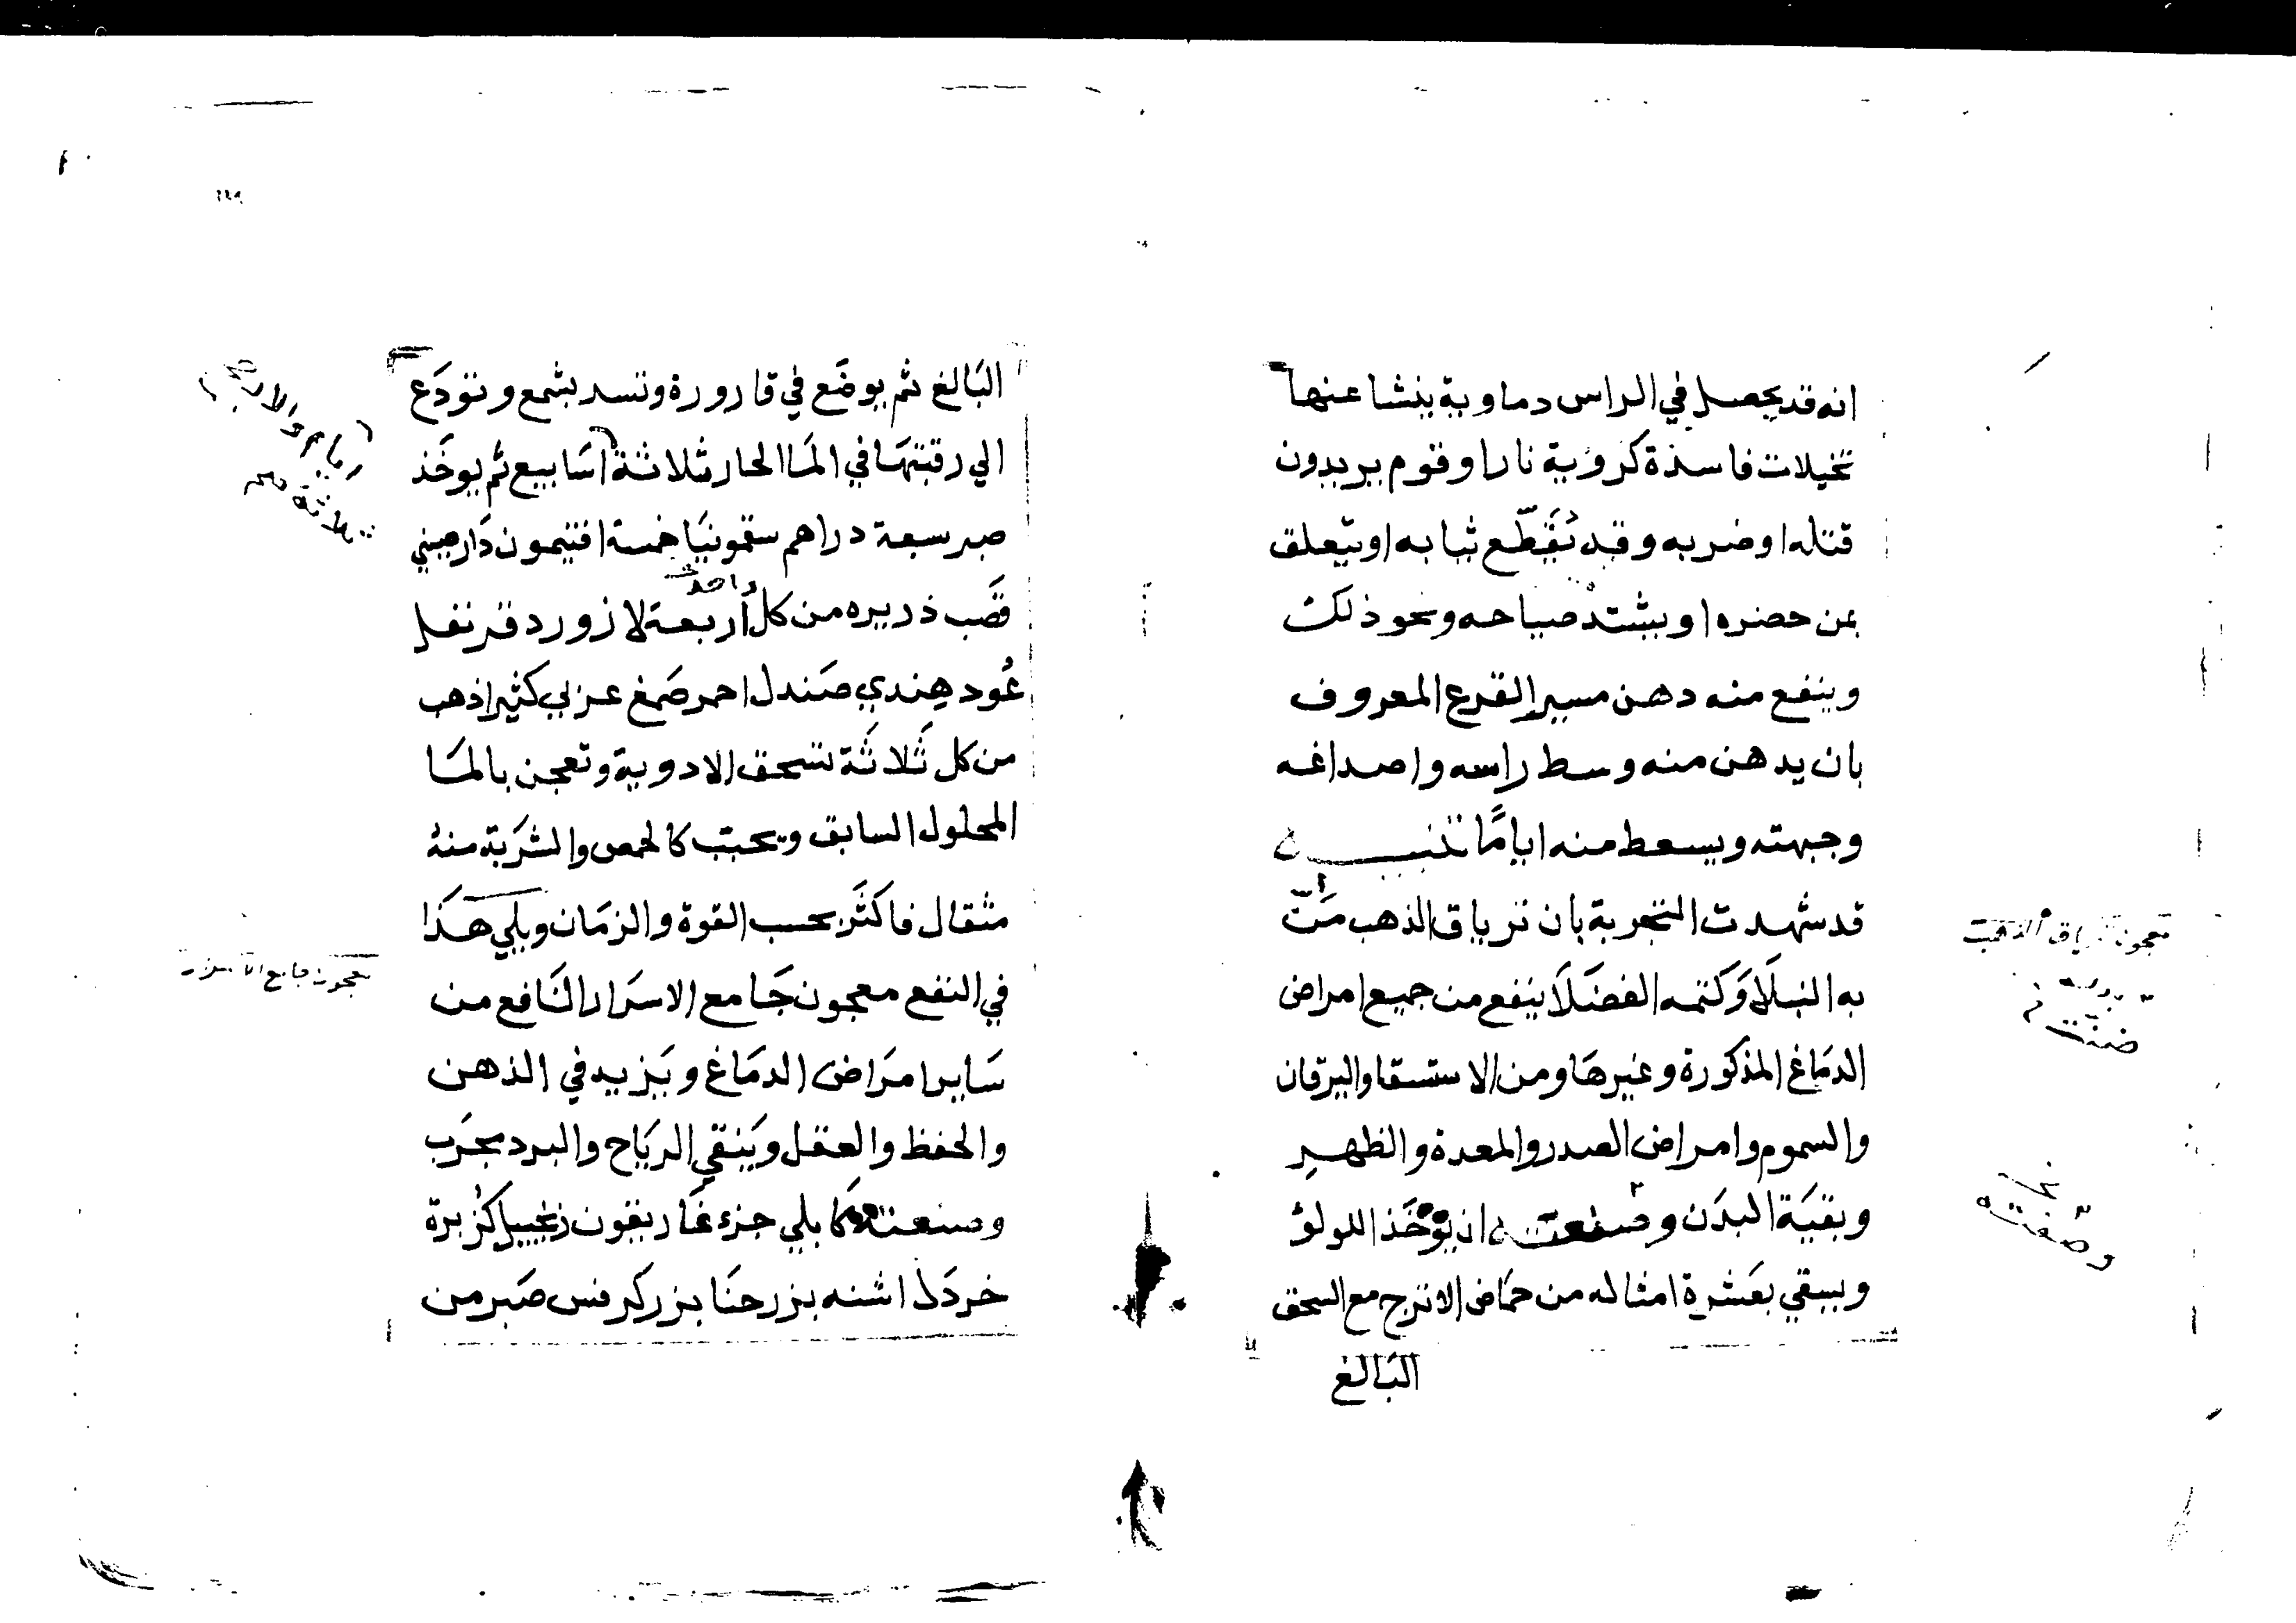 انه قد يحصل في الراس دماوية ينشا عنها
تخيلات فاسدة كروية نارا وقوم يريدون
قتله او ضربه وقد تقطع ثيابه او يتعلق
بمن حضره او يشتد صياحه ونحو ذلك
وينفع منه دهن القرع المعروف
بان يدهن منه وسط راسه واصداغه
وجبهته ويسعط منه اياما تنبيه
قد شهدت التجربة بان ترياق الذهب منت
به النبلا وكتمه الفضلا ينفع من جميع امراض
الدماغ المذكورة وغيرها ومن الاستسقا واليرقان
والسموم وامراض الصدر والمعدة والظهر
وبقية البدن وصنعته ان يوخذ اللولؤ
ويسقي بعشرة امثاله من حماض الاترج مع السحق
البالغ
معجون ترياق الذهب
وصفته
البالغ ثم يوضع في قارورة وتسد بشمع وتودع
الي رقبتها في الما الحار ثلاثة اسابيع ثم يوخذ
صبر سبعة دراهم سقمونيا خمسة افتيمون دارصيني
قصب ذريره من كل واحد اربعة لازورد قرنفل
عود هندي صندل احمر صمغ عربي كثيرا ذهب
من كل ثلاثة تسحق الادوية وتعجن بالما
المحلول السابق ويحبب كالحمص والشربة منه
مثقال فاكثر بحسب القوة والزمان ويلي هذا
في النفع معجون جامع الاسرار النافع من
ساير امراض الدماغ ويزيد في الذهن
والحفظ والعقل وينقي الرياح والبرد مجرب
وصنعته كابلي جزء غاريقون زنجبيل كزبرة
خردل اشنه بزر حنا بزر كرفس صبر من
معجون جامع الاسرار